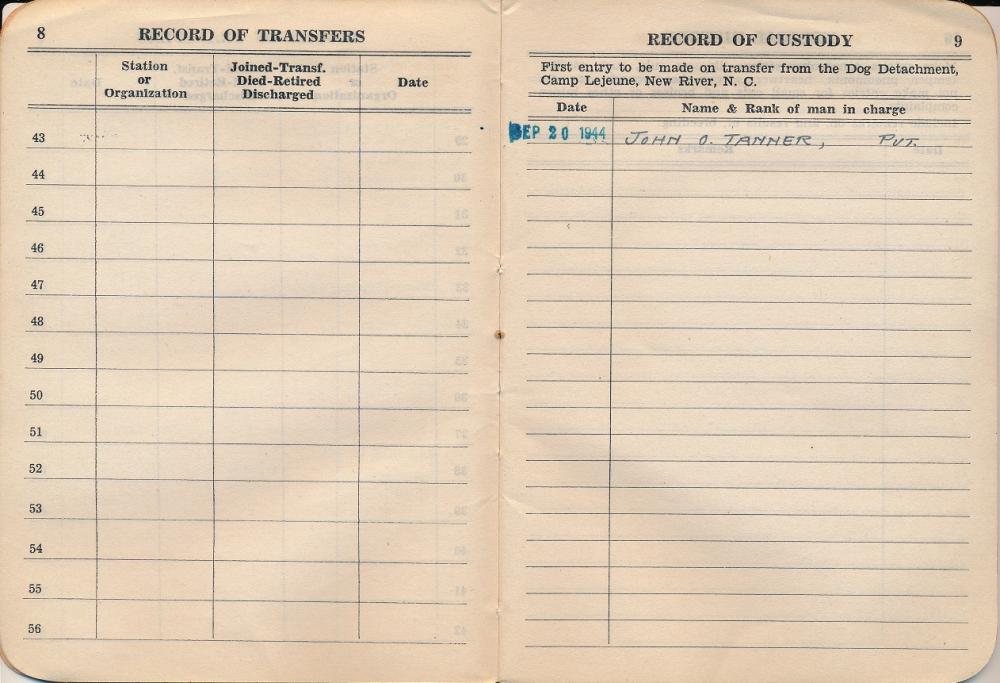 8
RECORD OF TRANSFERS
Station
or
Organization
Joined-Transf.
Died-Retired
Discharged
Date
43
44
45
46
47
48
49
50
51
52
53
54
55
56
RECORD OF CUSTODY
9
First entry to be made on transfer from the Dog Detachment,
Camp Lejeune, New River, N. C.
Date
Name & Rank of man in charge
SEP 20 1944 JOHN O. TANNER, PVT.